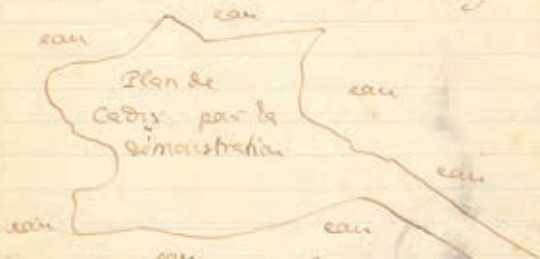 eau
eau
Plan de
eau
Cadix par la
démonstration
eau
eau
eau
eau